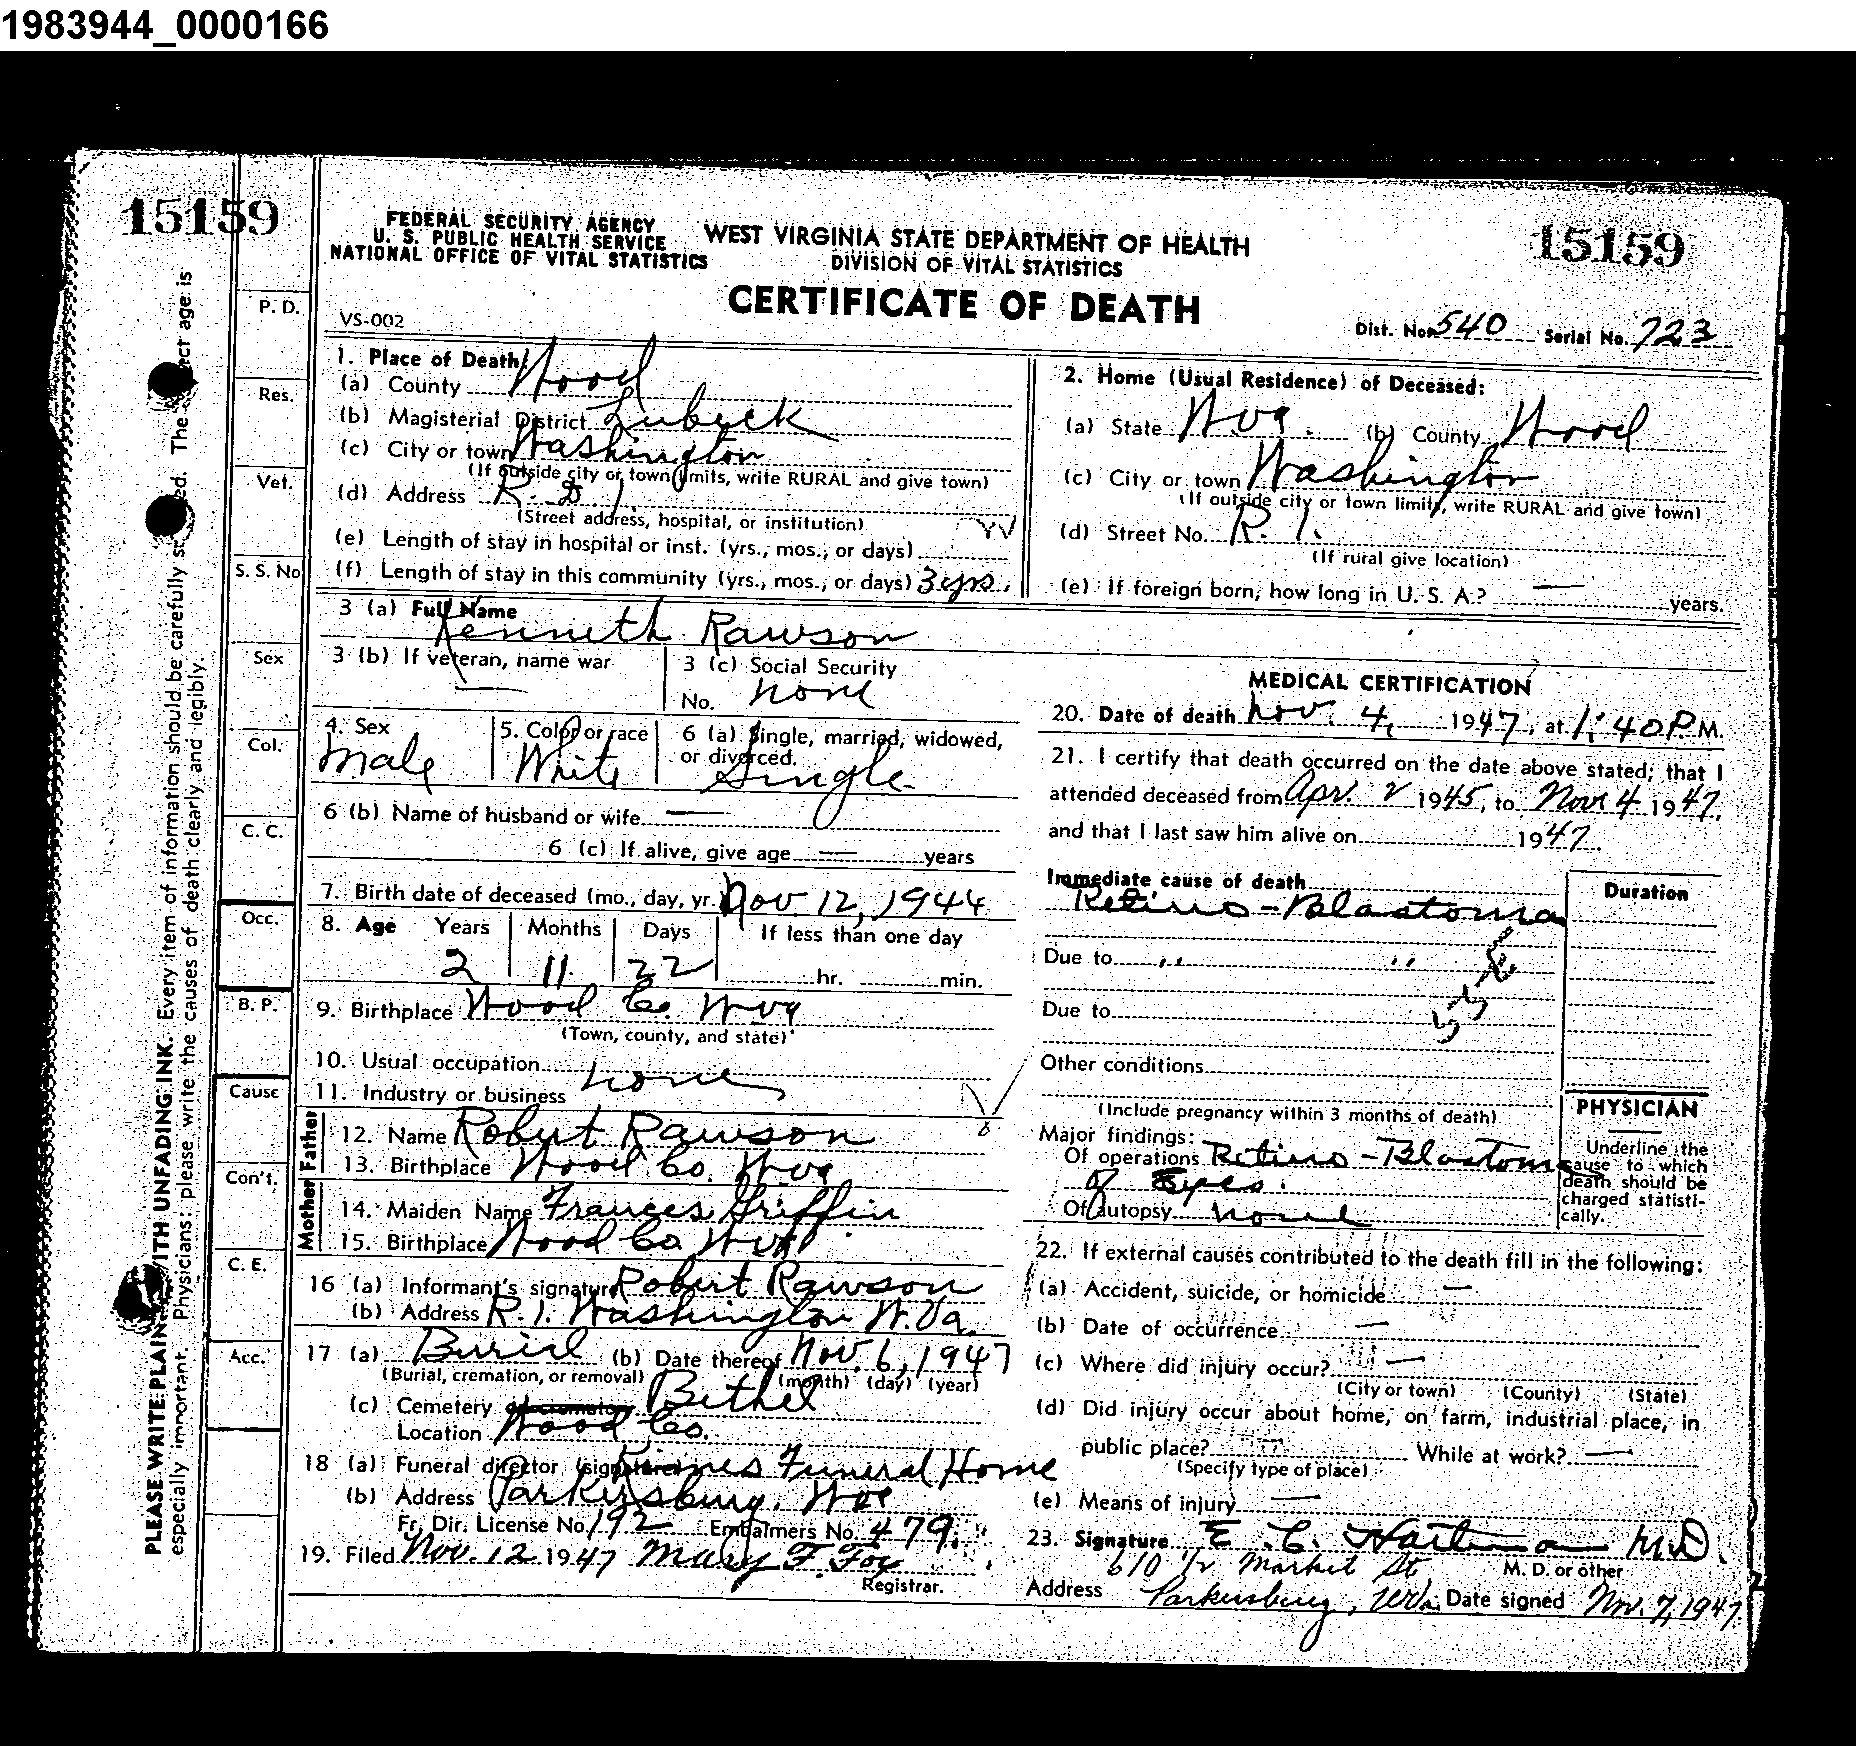 1983944_0000166
15159
15159
FEDERAL SECURITY AGENCY
U. S. PUBLIC HEALTH SERVICE
NATIONAL OFFICE OF VITAL STATISTICS
WEST VIRGINIA STATE DEPARTMENT OF HEALTH
DIVISION OF VITAL STATISTICS
CERTIFICATE OF DEATH
VS-002
Dist. No. 540 Serial No. 723
1. Place of Death:
(a) County Wood
(b) Magisterial District Lubeck
(c) City or town Washington
(If outside city or town limits, write RURAL and give town)
(d) Address R. D 1.
(Street address, hospital, or institution)
(e) Length of stay in hospital or inst. (yrs., mos., or days)
(f) Length of stay in this community (yrs., mos., or days) 3 yrs.
2. Home (Usual Residence) of Deceased:
(a) State W Va. (b) County Wood
(c) City or town Washington
(If outside city or town limits, write RURAL and give town)
(d) Street No. R. 1.
(If rural give location)
(e) If foreign born, how long in U. S. A.? — years.
3 (a) Full Name
Kenneth Rawson
3 (b) If veteran, name war —
3 (c) Social Security
No. none
4. Sex
Male
5. Color or race
White
6 (a) Single, married, widowed,
or divorced.
Single
6 (b) Name of husband or wife —
6 (c) If alive, give age — years
7. Birth date of deceased (mo., day, yr.) Nov 12, 1944
8. Age Years Months Days If less than one day
2 11 22 hr. min.
9. Birthplace Wood Co. W Va
(Town, county, and state)
10. Usual occupation none
11. Industry or business
Father
12. Name Robert Rawson
13. Birthplace Wood Co. W Va
Mother
14. Maiden Name Frances Griffin
15. Birthplace Wood Co. W Va
16 (a) Informant's signature Robert Rawson
(b) Address R. 1. Washington W. Va.
17 (a) Buriel (b) Date thereof Nov. 6, 1947
(Burial, cremation, or removal) (month) (day) (year)
(c) Cemetery Bethel
Location Wood Co.
18 (a) Funeral director (signature) Funeral Home
(b) Address Parkersburg, W Va
Fr. Dir. License No. 192 Embalmers No. 479.
19. Filed Nov. 12 1947 Mary F. Fox
Registrar.
MEDICAL CERTIFICATION
20. Date of death Nov. 4, 1947, at 1:40 P.M.
21. I certify that death occurred on the date above stated; that I
attended deceased from Apr. 2 1945, to Nov 4 1947.
and that I last saw him alive on 1947.
Immediate cause of death
Retino-Blastoma
Duration
Due to " "
Due to
Other conditions
(Include pregnancy within 3 months of death)
Major findings:
Of operations Retino-Blastoma
of Eyes.
Of autopsy none
PHYSICIAN
Underline the
cause to which
death should be
charged statisti-
cally.
22. If external causes contributed to the death fill in the following:
(a) Accident, suicide, or homicide —
(b) Date of occurrence —
(c) Where did injury occur? —
(City or town) (County) (State)
(d) Did injury occur about home, on farm, industrial place, in
public place? While at work? —
(Specify type of place)
(e) Means of injury —
23. Signature E. C. Hartman M.D.
M. D. or other
610 1/2 Market St
Address Parkersburg, W Va. Date signed Nov. 7, 1947
P. D.
Res.
Vet.
S. S. No
Sex
Col.
C. C.
Occ.
B. P.
Cause
Con't.
C. E.
Acc.
PLEASE WRITE PLAIN WITH UNFADING INK. Every item of information should be carefully The age is
especially important. Physicians: please write the causes of death clearly and legibly.